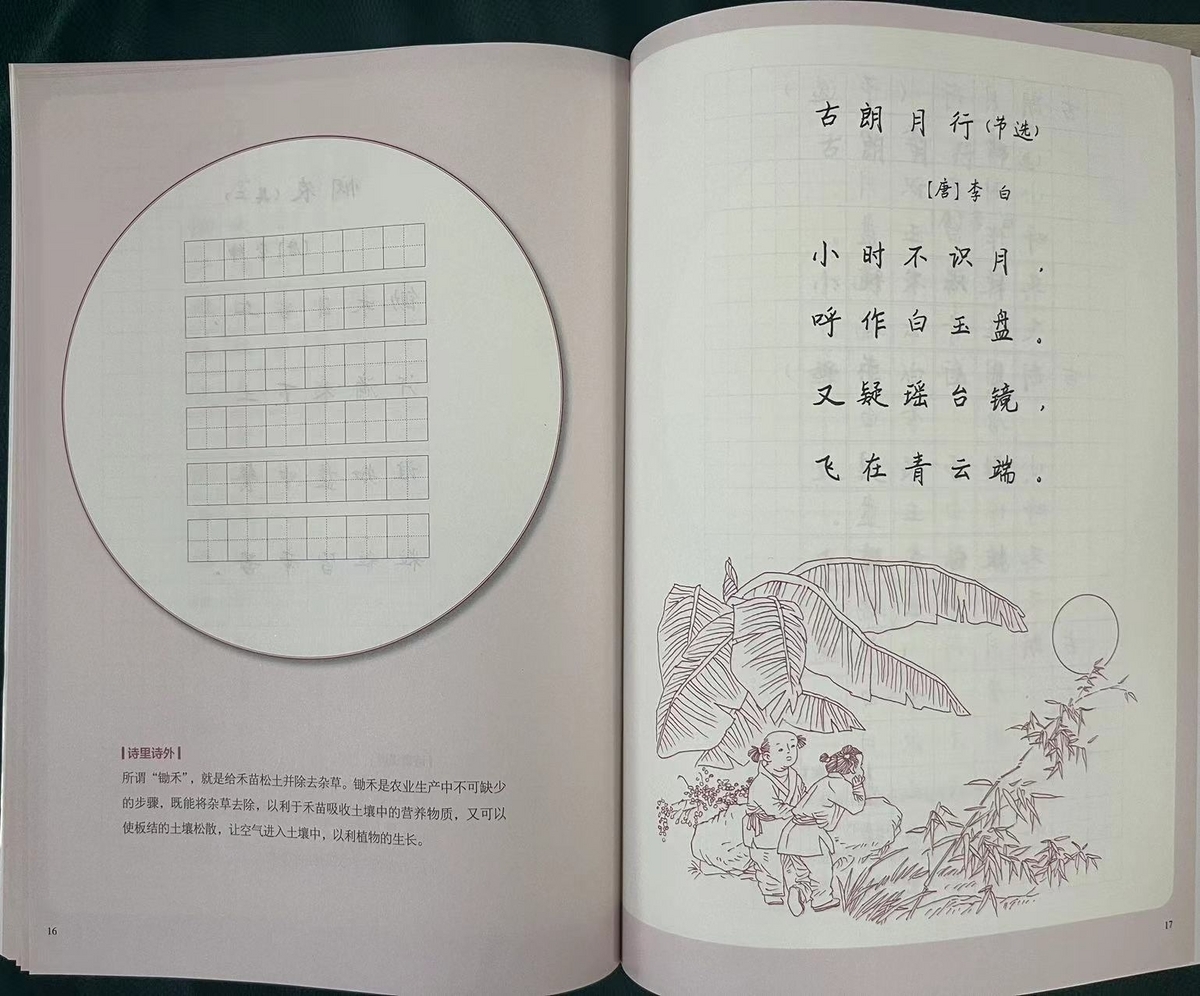 诗里诗外
所谓“锄禾”，就是给禾苗松土并除去杂草。锄禾是农业生产中不可缺少
的步骤，既能将杂草去除，以利于禾苗吸收土壤中的营养物质，又可以
使板结的土壤松散，让空气进入土壤中，以利植物的生长。
16
古朗月行（节选）
［唐］李白
小时不识月，
呼作白玉盘。
又疑瑶台镜，
飞在青云端。
17